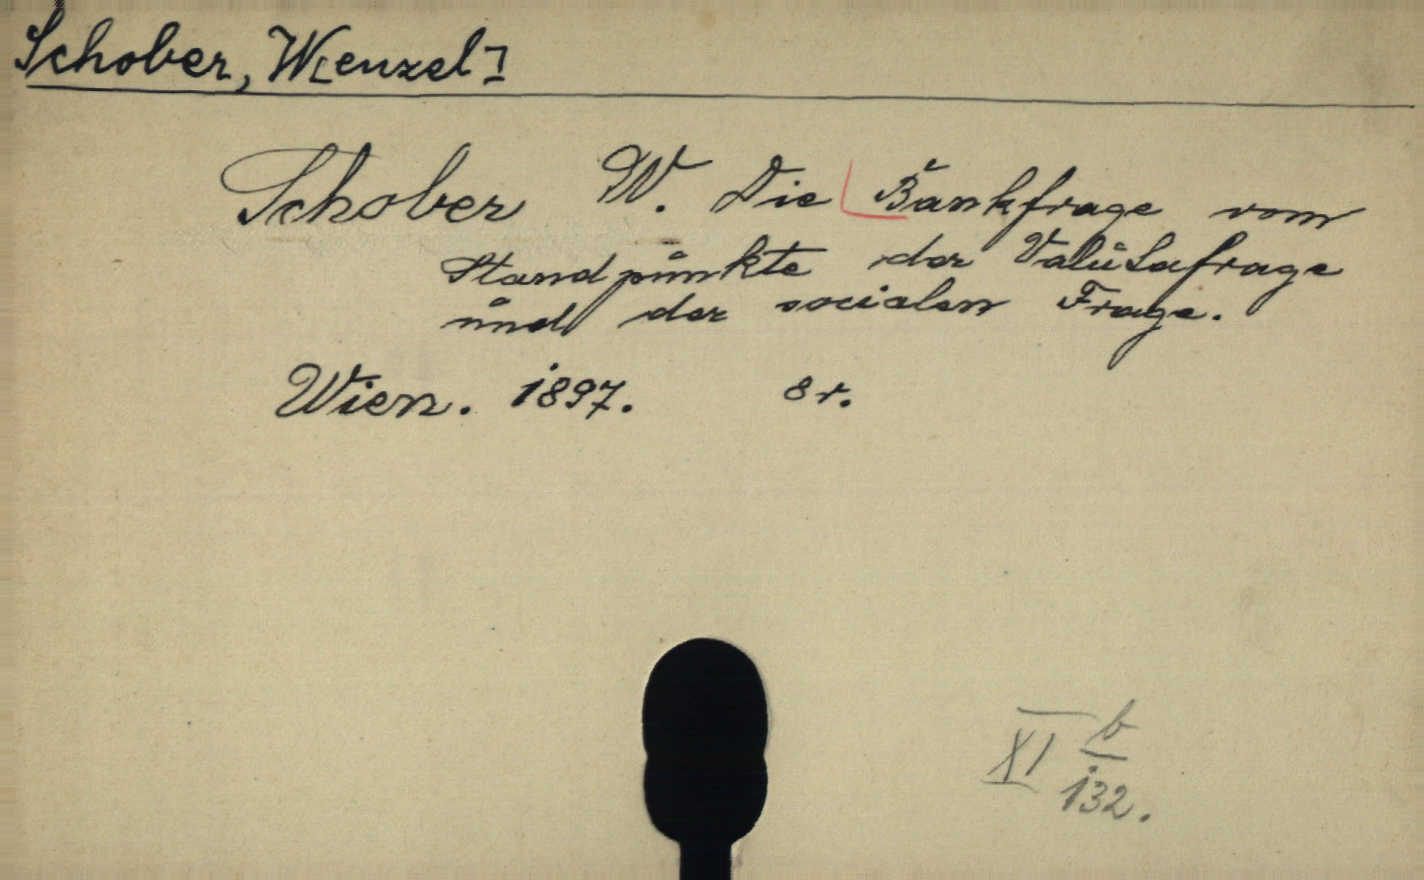 Schober, W[enzel]
Schober W. Die Bankfrage vom
Standpunkte der Valutafrage
und der socialen Frage.
Wien. 1897. 8 r.
XI b
132.